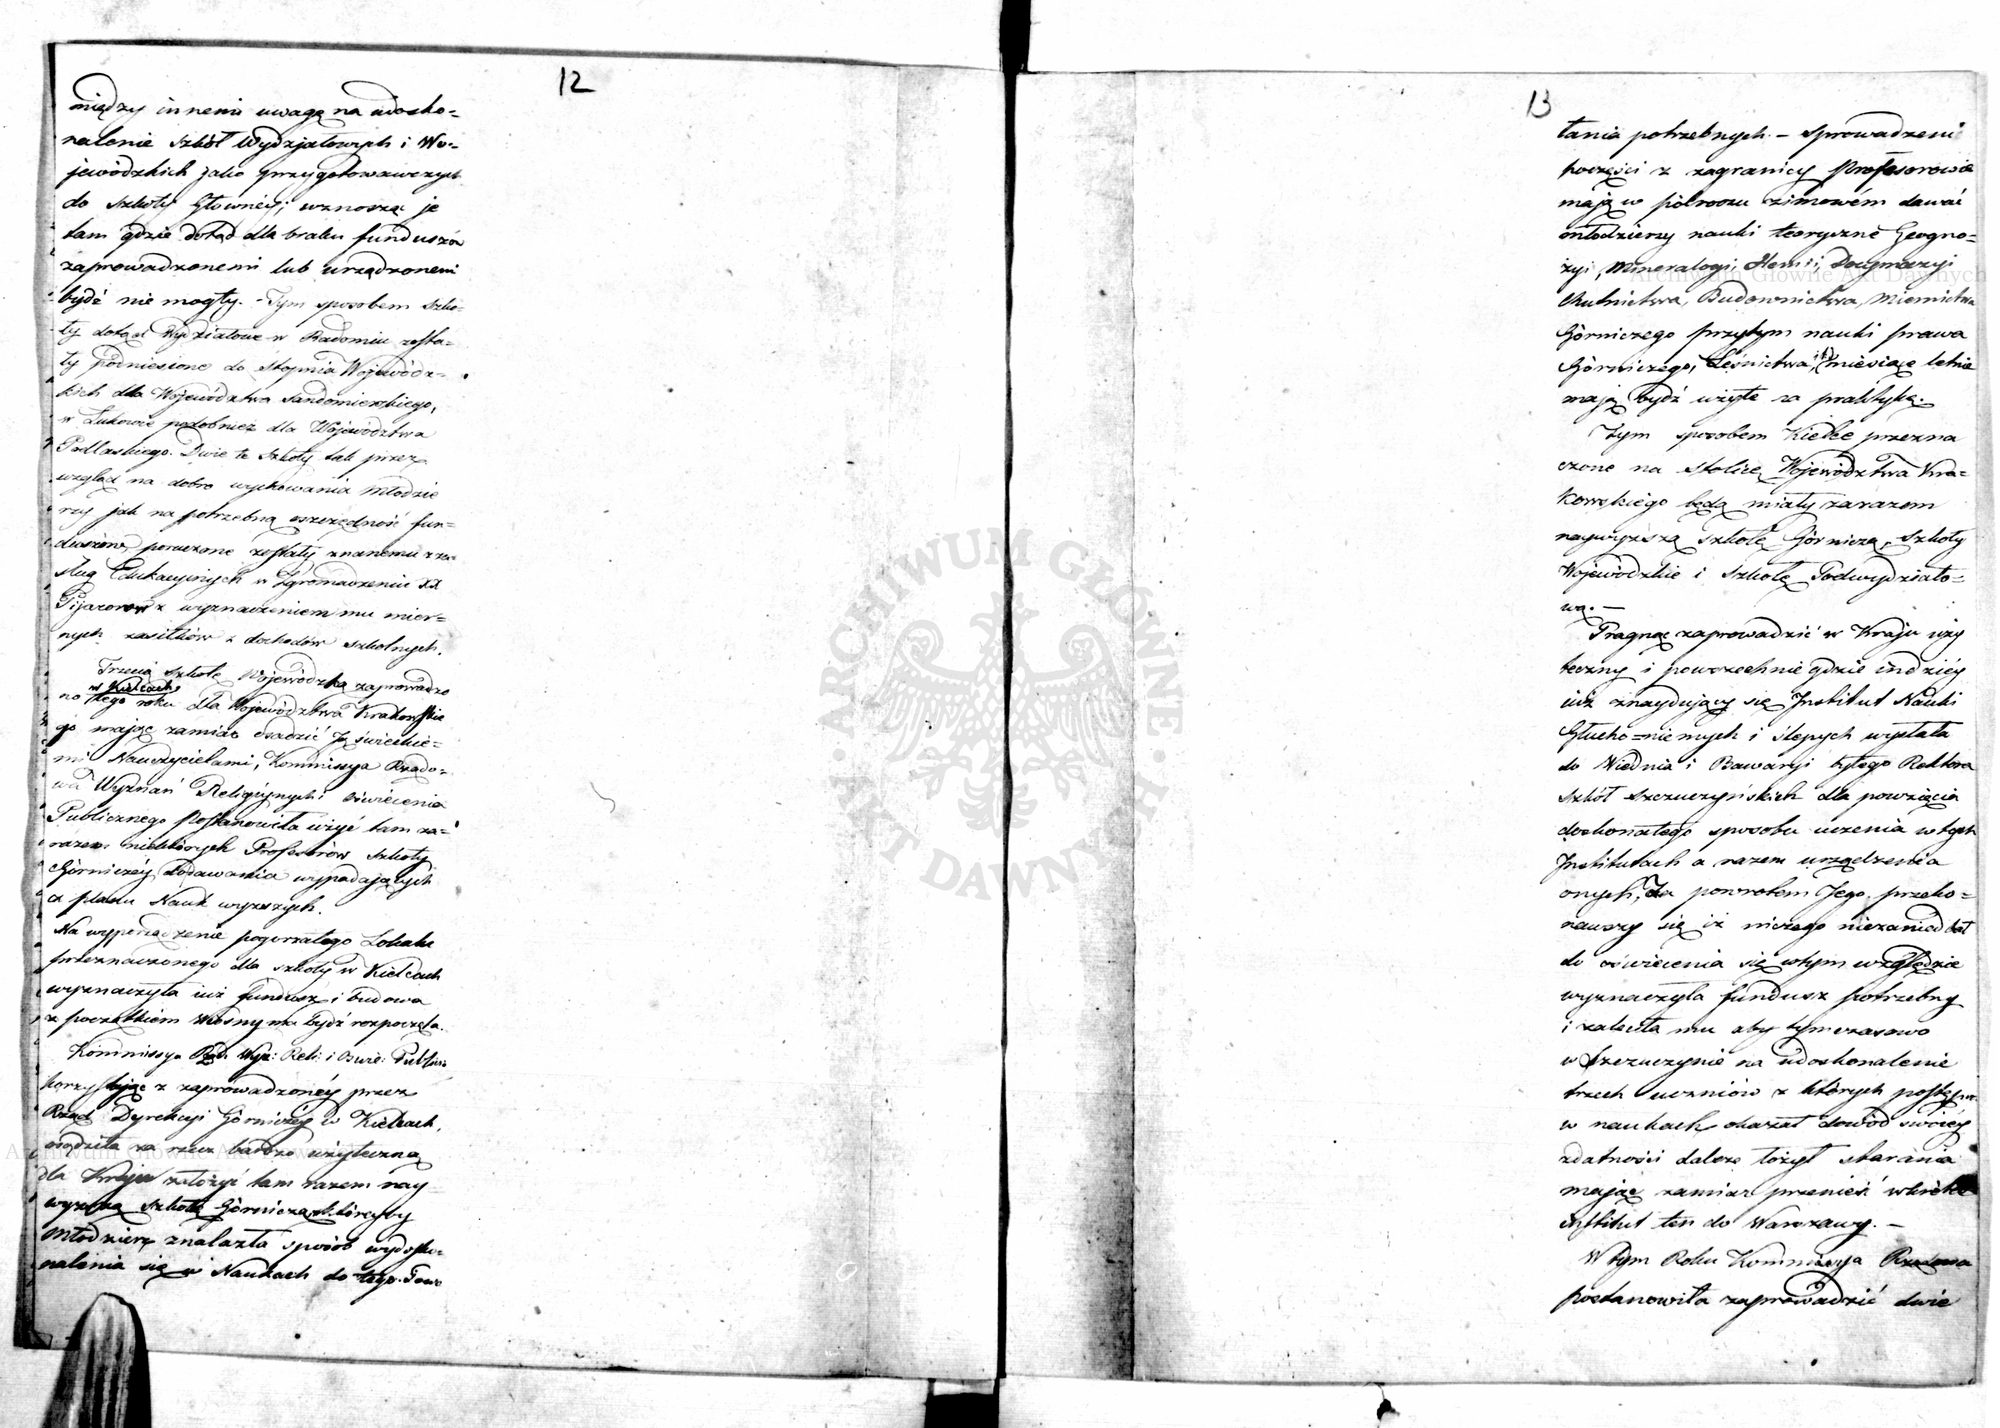 12
między innemi uwagę na udosko-
nalenie szkół Wydziałowych i Wo-
jewódzkich jako przygotowawczych
do szkoły Głównéy; wznosząc je
tam gdzie dotąd dla braku funduszów
zaprowadzonemi lub urządzonemi
bydź nie mogły. - Tym sposobem szko-
ły dotąd Wydziałowe w Radomiu zosta-
ły podniesione do stopnia Wojewódz-
kich dla Województwa Sandomierskiego,
w Łukowie podobnież dla Województwa
Podlaskiego. Dwie te szkoły tak przez
wzgląd na dobro wychowania Młodzie
rzy jak na potrzebną oszczędność fun-
duszów, poruczone zostały znanemu z za-
sług Edukacyjnych w Zgromadzeniu XX
Pijarów z wyznaczeniem mu mier-
nych zasiłków z dochodów szkolnych.
Trzecią szkołę Wojewódzką zaprowadzo
w Kielcach
no tego roku dla Województwa Krakowskie
go mając zamiar osadzić Ją świeckie-
mi Nauczycielami, Kommissya Rządo-
wa Wyznań Religiynych i Oświecenia
Publicznego postanowiła użyć tam za-
razem niektórych Profesorów szkoły
Górniczéy dodawania wypadających
z planu Nauk wyższych.
Na wyporządzenie pogorzałego Lokalu
przeznaczonego dla szkoły w Kielcach
wyznaczyła iuż fundusz i budowa
z początkiem Wiosny ma bydź rozpoczęta.
Kommissya Rząd: Wyz: Reli: i Oświe: Publicz:
korzystając z zaprowadzonéy przez
Rząd Dyrekcyi Górniczéy w Kielcach,
osądziła za rzecz bardzo użyteczną
dla Kraju założyć tam razem nay-
wyższą szkołę Górniczą, w któreyby
Młodzież znalazła sposób wydosko-
nalenia się w Naukach do tego Powo
13
łania potrzebnych. - Sprowadzeni
poczęści z zagranicy Profesorowie
mają w półroczu zimowém dawać
młodzierzy nauki teoryczne Geogno-
zyi, Mineralogii, Hemii, Docymazyi
Hutnictwa, Budownictwa, Miernictwa
Górniczego przytym nauki prawa
Górniczego, Leśnictwa, miesiące letnie
mają bydź użyte za praktykę.
Tym sposobem Kielce przezna
czone na stolicę Województwa Kra-
kowskiego będą miały zarazem
naywyższą szkołę Górniczą, Szkoły
Wojewódzkie i Szkołę Podwydziało-
wą. -
Pragnąc zaprowadzić w Kraju uży
teczny i powszechnie gdzie indziéy
iuż znaydujący się Institut Nauki
Głucho=niemych i ślepych wysłała
do Wiednia i Bawaryi byłego Rektora
Szkół Szczuczyńskich dla powzięcia
doskonałego sposobu uczenia w tych
Institutach a razem urządzenia
onych, Za powrotem Jego przeko-
nawszy się iż niczego niezaniedbał
do oświecenia się wtym względzie
wyznaczyła fundusz potrzebny
i zaleciła mu aby tymczasowo
w Szczuczynie na udoskonalenie
trzech uczniów z których postępu
w naukach okazał dowód swoiéy
zdatności dalsze łożył starania
mając zamiar przenieść wkrótce
institut ten do Warszawy. -
W tym Roku Kommissya Rządowa
postanowiła zaprowadzić dwie
ARCHIWUM GŁÓWNE AKT DAWNYCH
Archiwum Główne Akt Dawnych